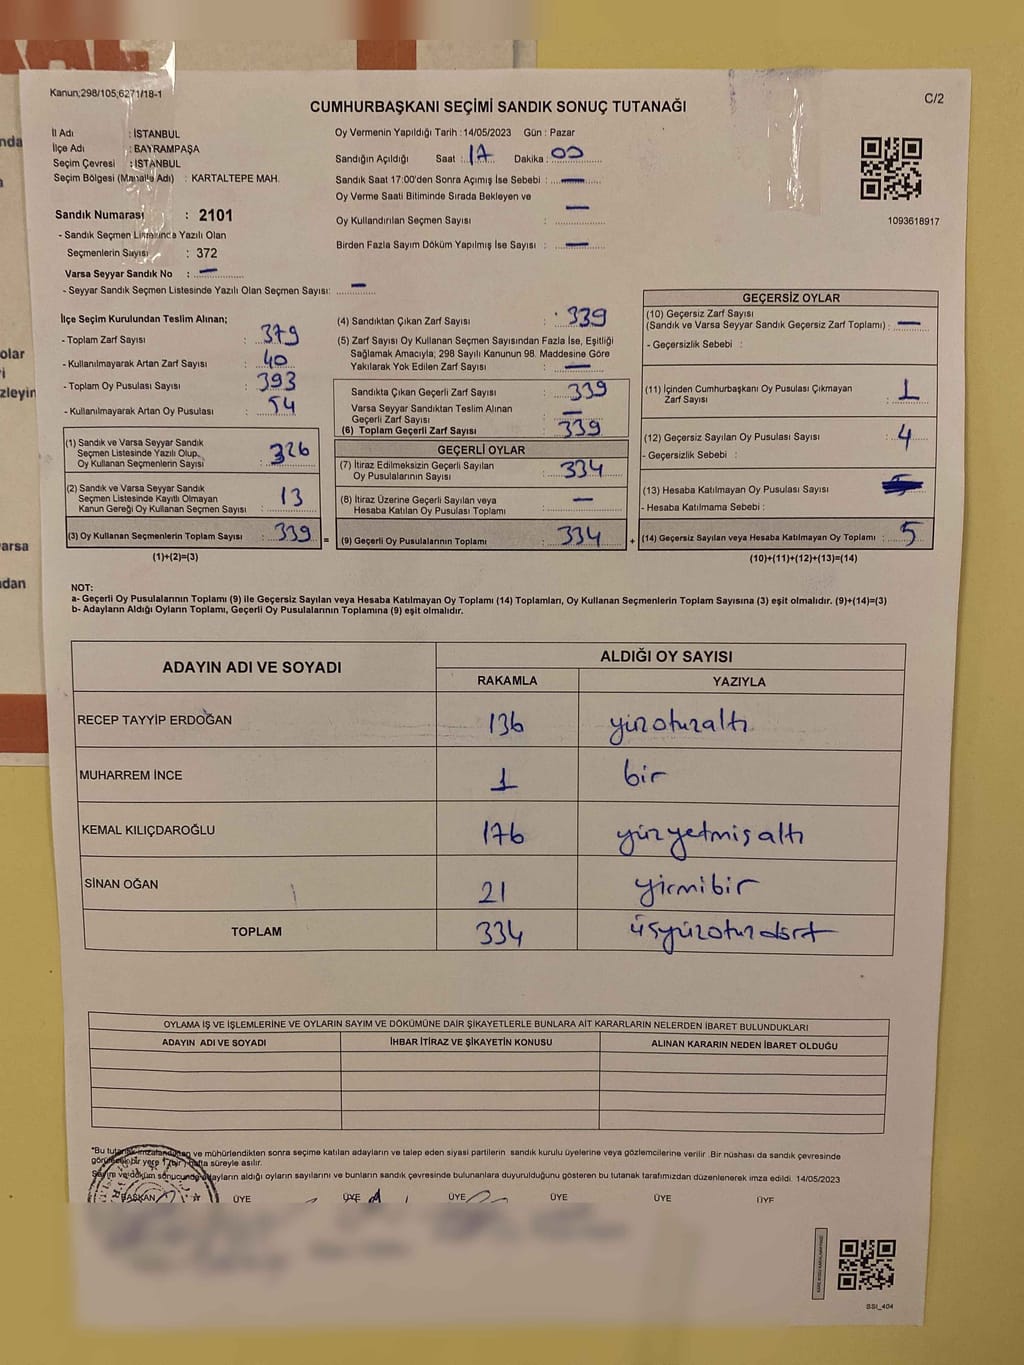 Kanun;298/105;6271/18-1
CUMHURBAŞKANI SEÇİMİ SANDIK SONUÇ TUTANAĞI
C/2
İl Adı : İSTANBUL
İlçe Adı : BAYRAMPAŞA
Seçim Çevresi : İSTANBUL
Seçim Bölgesi (Mahalle Adı) : KARTALTEPE MAH.
Oy Vermenin Yapıldığı Tarih : 14/05/2023 Gün : Pazar
Sandığın Açıldığı Saat : 17 Dakika : 00
Sandık Saat 17:00'den Sonra Açımış İse Sebebi : —
Oy Verme Saati Bitiminde Sırada Bekleyen ve
Oy Kullandırılan Seçmen Sayısı : —
Birden Fazla Sayım Döküm Yapılmış İse Sayısı : —
1093618917
Sandık Numarası : 2101
- Sandık Seçmen Listesinde Yazılı Olan
Seçmenlerin Sayısı : 372
Varsa Seyyar Sandık No : —
- Seyyar Sandık Seçmen Listesinde Yazılı Olan Seçmen Sayısı: —
İlçe Seçim Kurulundan Teslim Alınan;
- Toplam Zarf Sayısı : 379
- Kullanılmayarak Artan Zarf Sayısı : 40
- Toplam Oy Pusulası Sayısı : 393
- Kullanılmayarak Artan Oy Pusulası : 54
(1) Sandık ve Varsa Seyyar Sandık
Seçmen Listesinde Yazılı Olup,
Oy Kullanan Seçmenlerin Sayısı : 326
(2) Sandık ve Varsa Seyyar Sandık
Seçmen Listesinde Kayıtlı Olmayan
Kanun Gereği Oy Kullanan Seçmen Sayısı : 13
(3) Oy Kullanan Seçmenlerin Toplam Sayısı : 339
(1)+(2)=(3)
(4) Sandıktan Çıkan Zarf Sayısı : 339
(5) Zarf Sayısı Oy Kullanan Seçmen Sayısından Fazla İse, Eşitliği
Sağlamak Amacıyla, 298 Sayılı Kanunun 98. Maddesine Göre
Yakılarak Yok Edilen Zarf Sayısı : —
Sandıkta Çıkan Geçerli Zarf Sayısı : 339
Varsa Seyyar Sandıktan Teslim Alınan
Geçerli Zarf Sayısı : —
(6) Toplam Geçerli Zarf Sayısı : 339
GEÇERLİ OYLAR
(7) İtiraz Edilmeksizin Geçerli Sayılan
Oy Pusulalarının Sayısı : 334
(8) İtiraz Üzerine Geçerli Sayılan veya
Hesaba Katılan Oy Pusulası Toplamı : —
= (9) Geçerli Oy Pusulalarının Toplamı : 334
GEÇERSİZ OYLAR
(10) Geçersiz Zarf Sayısı
(Sandık ve Varsa Seyyar Sandık Geçersiz Zarf Toplamı) : —
- Geçersizlik Sebebi :
(11) İçinden Cumhurbaşkanı Oy Pusulası Çıkmayan
Zarf Sayısı : 1
(12) Geçersiz Sayılan Oy Pusulası Sayısı : 4
- Geçersizlik Sebebi :
(13) Hesaba Katılmayan Oy Pusulası Sayısı
- Hesaba Katılmama Sebebi :
+ (14) Geçersiz Sayılan veya Hesaba Katılmayan Oy Toplamı : 5
(10)+(11)+(12)+(13)=(14)
NOT:
a- Geçerli Oy Pusulalarının Toplamı (9) ile Geçersiz Sayılan veya Hesaba Katılmayan Oy Toplamı (14) Toplamları, Oy Kullanan Seçmenlerin Toplam Sayısına (3) eşit olmalıdır. (9)+(14)=(3)
b- Adayların Aldığı Oyların Toplamı, Geçerli Oy Pusulalarının Toplamına (9) eşit olmalıdır.
ADAYIN ADI VE SOYADI
ALDIĞI OY SAYISI
RAKAMLA YAZIYLA
RECEP TAYYİP ERDOĞAN 136 yüzotuzaltı
MUHARREM İNCE 1 bir
KEMAL KILIÇDAROĞLU 176 yüzyetmişaltı
SİNAN OĞAN 21 yirmibir
TOPLAM 334 üçyüzotuzdört
OYLAMA İŞ VE İŞLEMLERİNE VE OYLARIN SAYIM VE DÖKÜMÜNE DAİR ŞİKAYETLERLE BUNLARA AİT KARARLARIN NELERDEN İBARET BULUNDUKLARI
ADAYIN ADI VE SOYADI İHBAR İTİRAZ VE ŞİKAYETİN KONUSU ALINAN KARARIN NEDEN İBARET OLDUĞU
*Bu tutanak imzalandıktan ve mühürlendikten sonra seçime katılan adayların ve talep eden siyasi partilerin sandık kurulu üyelerine veya gözlemcilerine verilir .Bir nüshası da sandık çevresinde
görülebilen bir yere 1 (bir) hafta süreyle asılır.
Sayım ve döküm sonucunda adayların aldığı oyların sayılarını ve bunların sandık çevresinde bulunanlara duyurulduğunu gösteren bu tutanak tarafımızdan düzenlenerek imza edildi. 14/05/2023
BAŞKAN ÜYE ÜYE ÜYE ÜYE ÜYE ÜYE
SSI_404
olar
zleyin